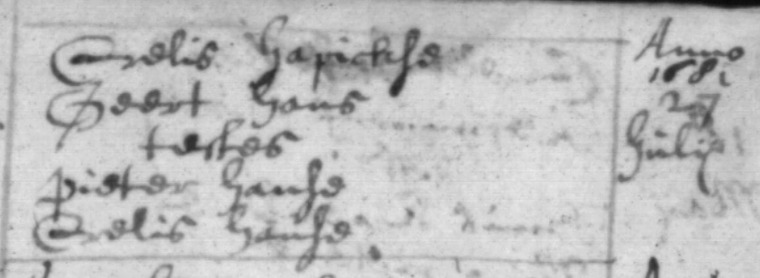 Crelis Hapickse
Geert Hans
testes
pieter Hanse
Crelis Hanse
Anno
1681
27
Julij